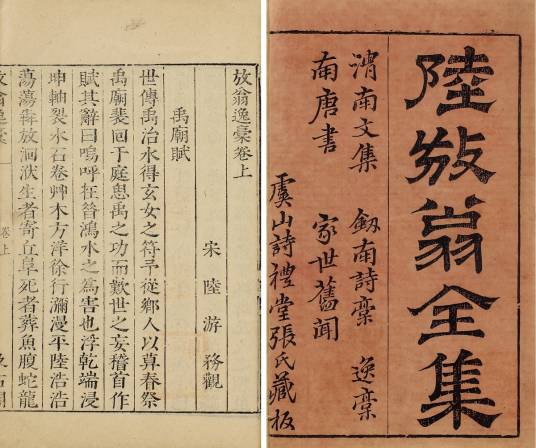 陸放翁全集
渭南文集 劔南詩稾 逸稾
南唐書 家世舊聞
虞山詩禮堂張氏藏板
放翁逸稾卷上
宋 陸游 務觀
禹廟賦
世傳禹治水得玄女之符予從鄉人以暮春祭
禹廟裴回于庭思禹之功而歎世之妄稽首作
賦其辭曰嗚呼在昔鴻水之為害也浮乾端浸
坤軸裂水石卷艸木方洋徐行瀰漫平陸浩浩
蕩蕩奔放洄洑生者寄丘阜死者葬魚腹蛇龍
卷上